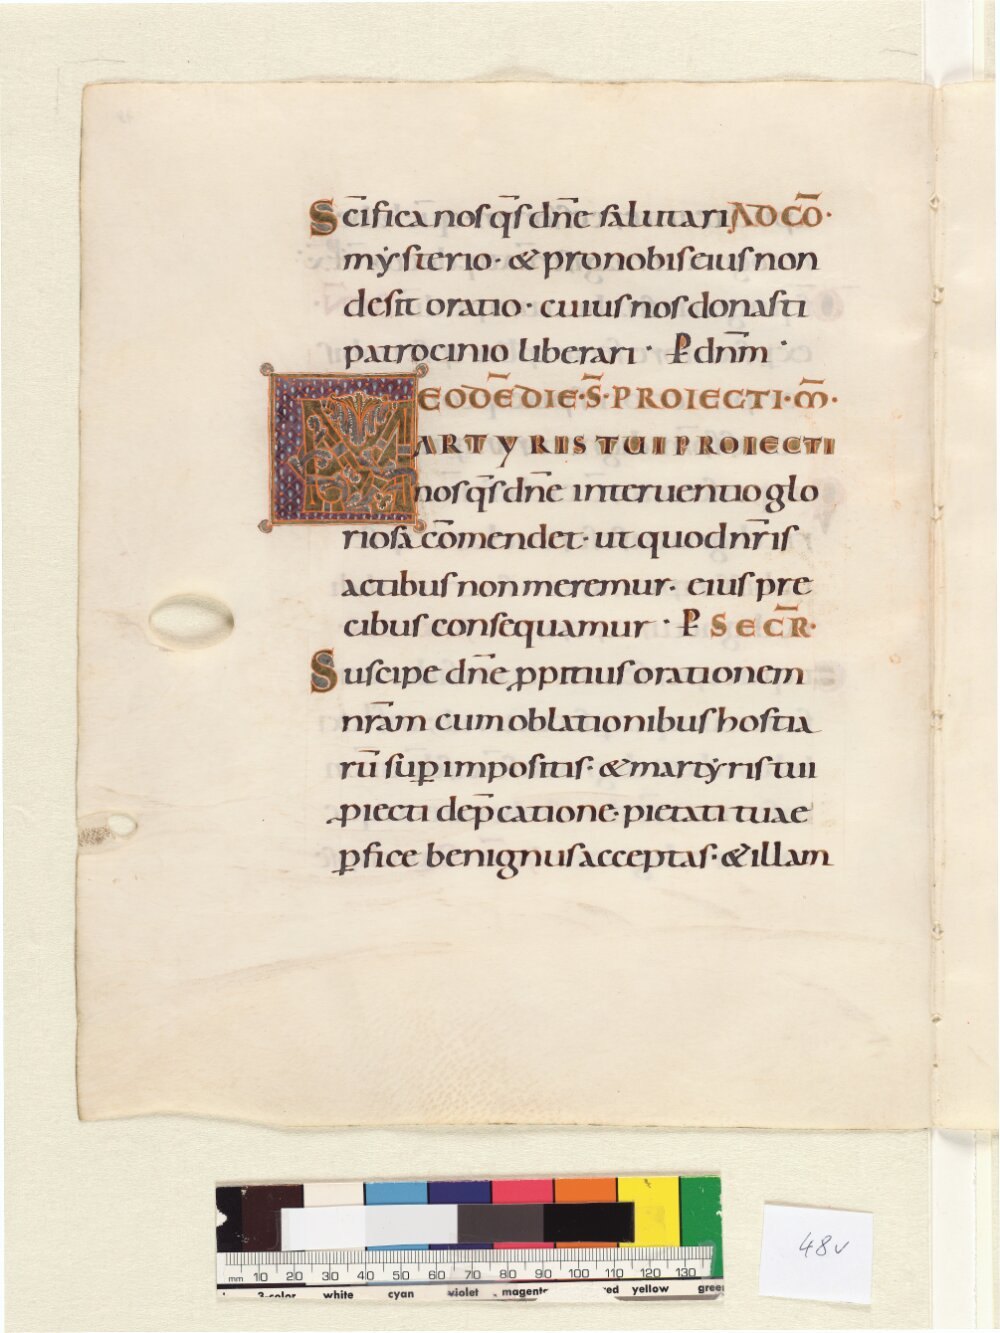 Sc̄ifica nos q̄s dn̄e salutari AD CŌ·
mẏsterio· & pro nobis eius non
desit oratio· cuius nos donasti
patrocinio liberari· P dn̄m·
EODĒ DIE· S̄· PROIECTI· M̄·
MARTYRIS TUI PROIECTI
nos q̄s dn̄e interuentio glo
riosa cōmendet· ut quod nr̄is
actibus non meremur· eius pre
cibus consequamur· P SECR̄·
Suscipe dn̄e ꝓpitius orationem
nr̄am cum oblationibus hostia
rū suꝑ impositis· & martẏris tui
ꝓiecti dep̄catione· pietati tuae
ꝑfice benignus acceptas· & illam
48v
mm 10 20 30 40 50 60 70 80 90 100 110 120 130
3-color white cyan violet magenta red yellow green